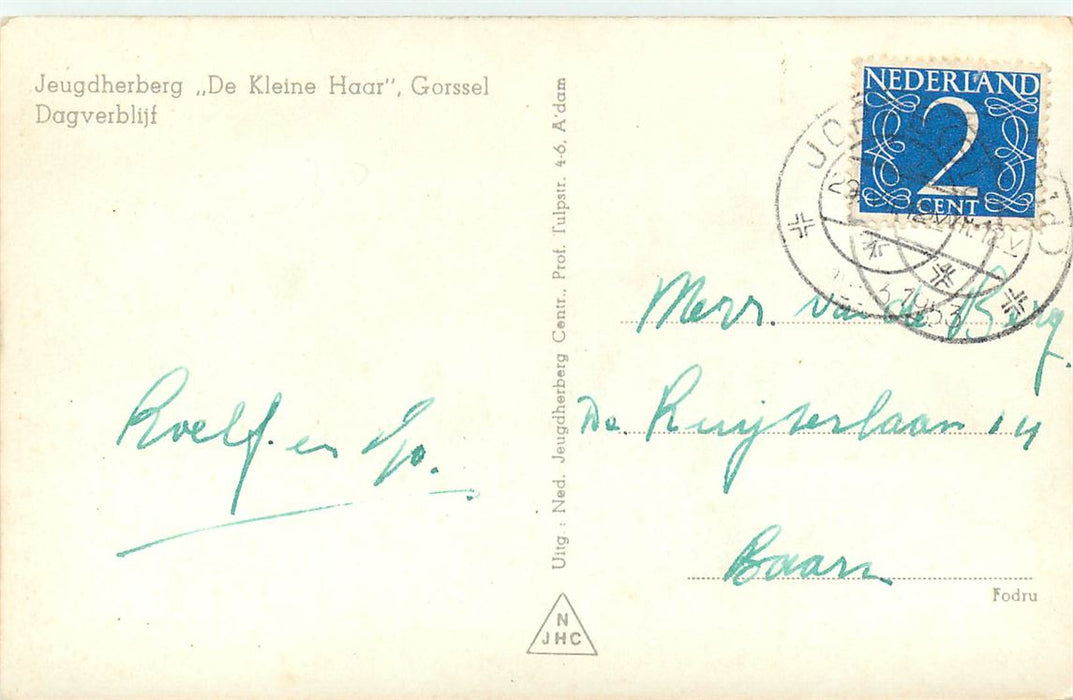 Jeugdherberg „De Kleine Haar", Gorssel
Dagverblijf
Roelf en Jo.
Uitg.: Ned. Jeugdherberg Centr., Prof. Tulpstr. 4-6, A'dam
N
JHC
NEDERLAND
2
CENT
1953
Mevr. van de Berg.
De Ruijterlaan 14
Baarn
Fodru